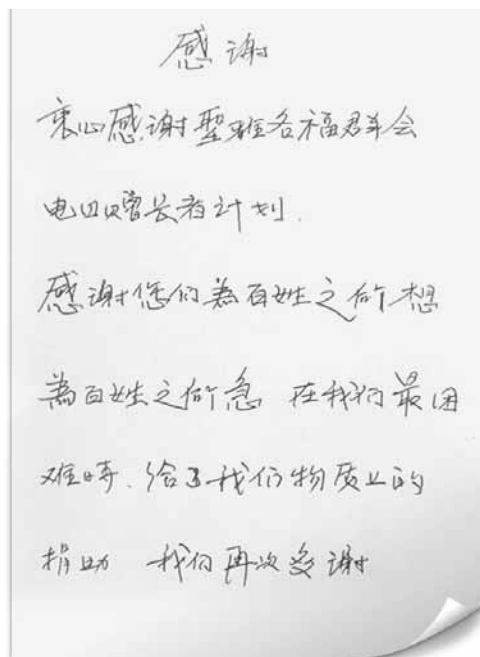 感谢
衷心感谢聖雅各福群会
电四赠长者计划.
感谢您们為百姓之所想
為百姓之所急 在我们最困
难時.给了我们物质上的
捐助 我们再次多谢